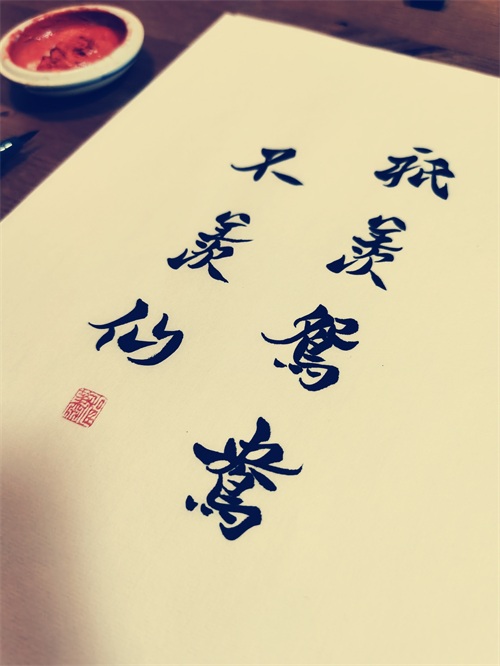 祗羡鸳鸯
不羡仙